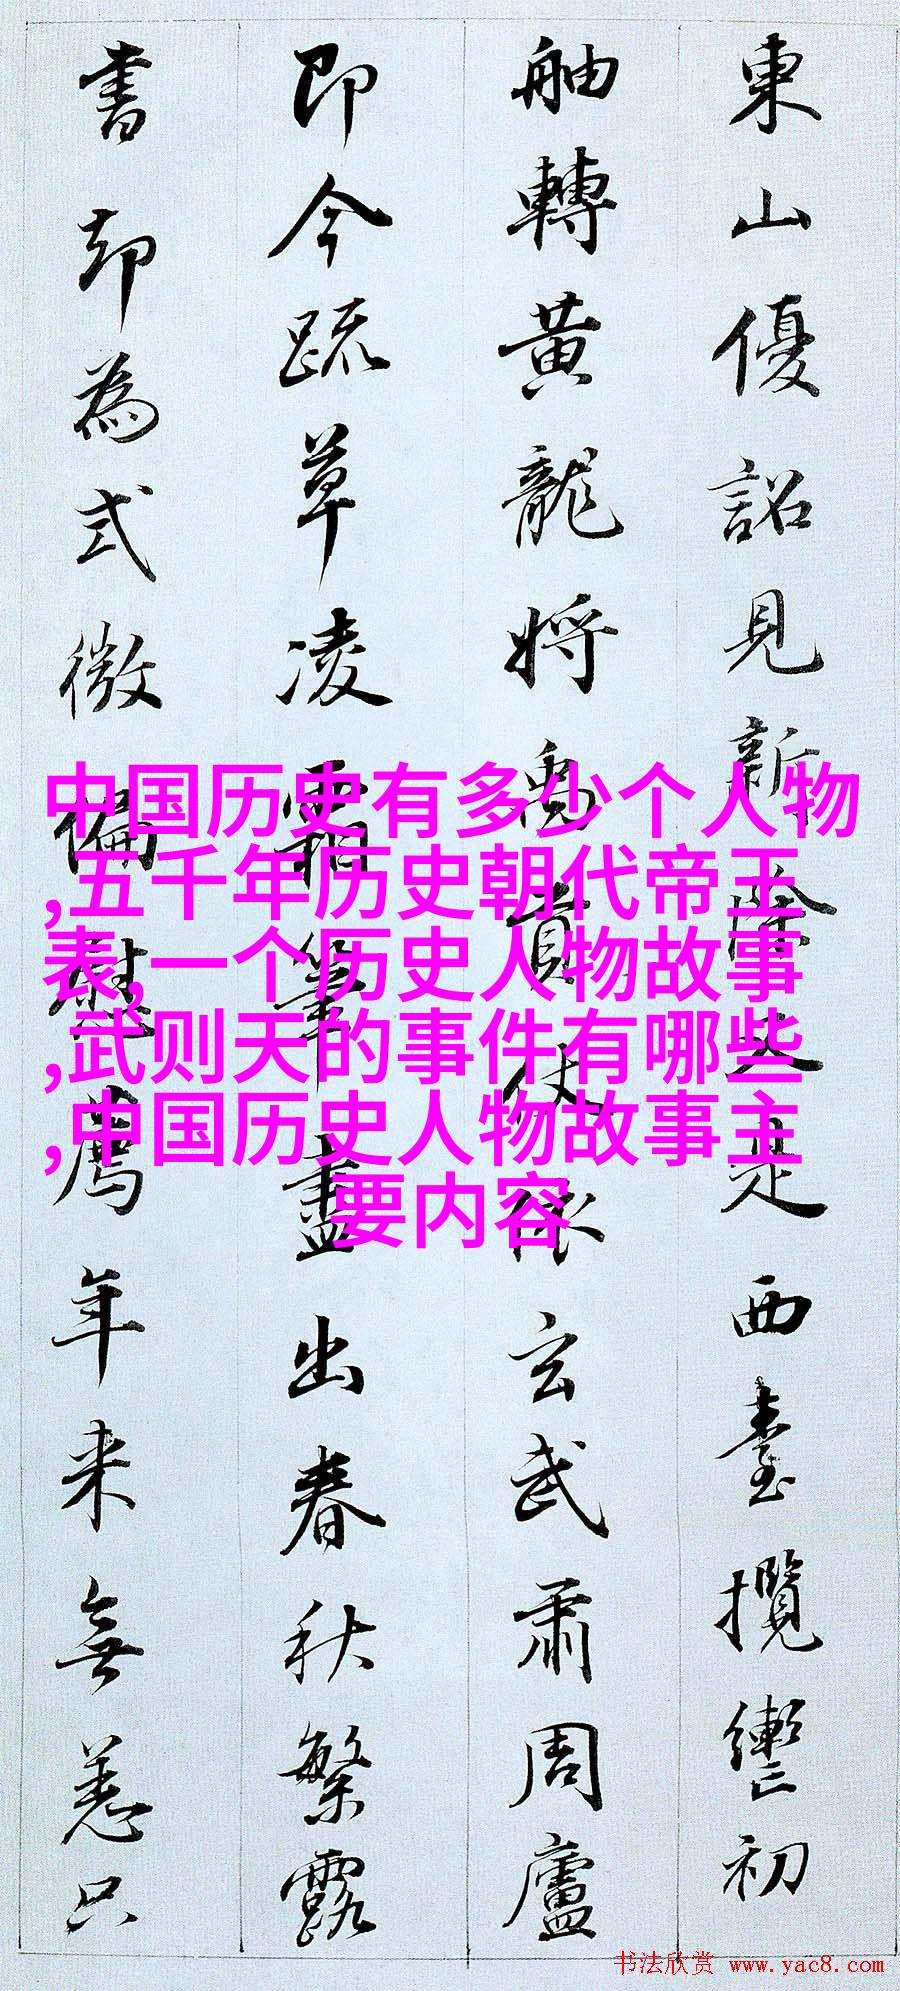 東山優詔見新除又是西臺攬轡初
舳轉黃龍將禹貢仗依玄武肅周廬
即今疏草凌霜筆盡出春秋繁露
書却為式微偏慰薦年來無恙只
中国历史有多少个人物
,五千年历史朝代帝王
表,一个历史人物故事
,武则天的事件有哪些
,中国历史人物故事主
要内容
书法欣赏 www.yac8.com